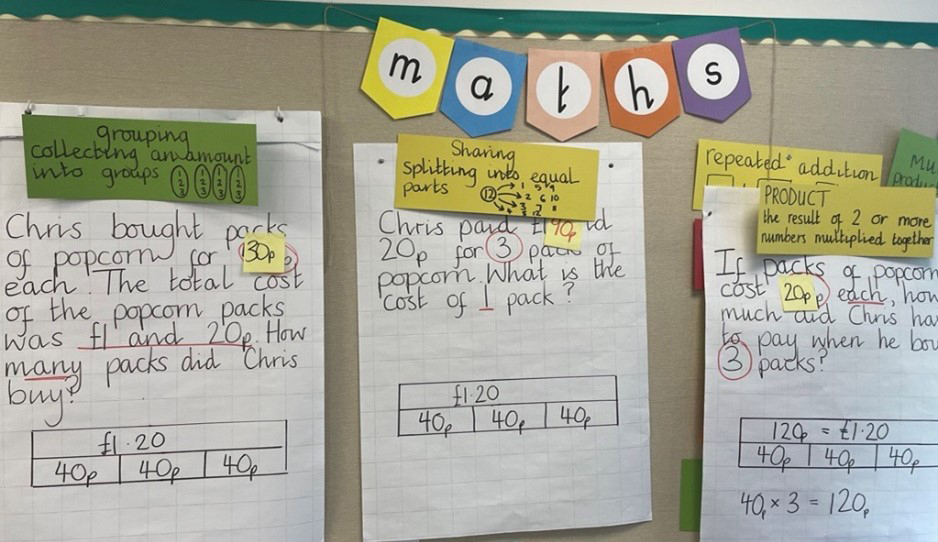 maths
grouping
collecting an amount
into groups
1 2 3 1 2 3 1 2 3 1 2 3
Chris bought packs
of popcorn for 30p
each. The total cost
of the popcorn packs
was £1 and 20p. How
many packs did Chris
buy?
£1·20
40p 40p 40p
Sharing
Splitting into equal
parts
12
Chris paid
40p
20p for 3 packs of
popcorn. What is the
cost of 1 pack?
£1·20
40p 40p 40p
repeated addition
Mu
produc
PRODUCT
the result of 2 or more
numbers multiplied together
If packs of popcorn
cost 20p each, how
much did Chris ha
to pay when he bou
3 packs?
120p = £1·20
40p 40p 40p
40p × 3 = 120p